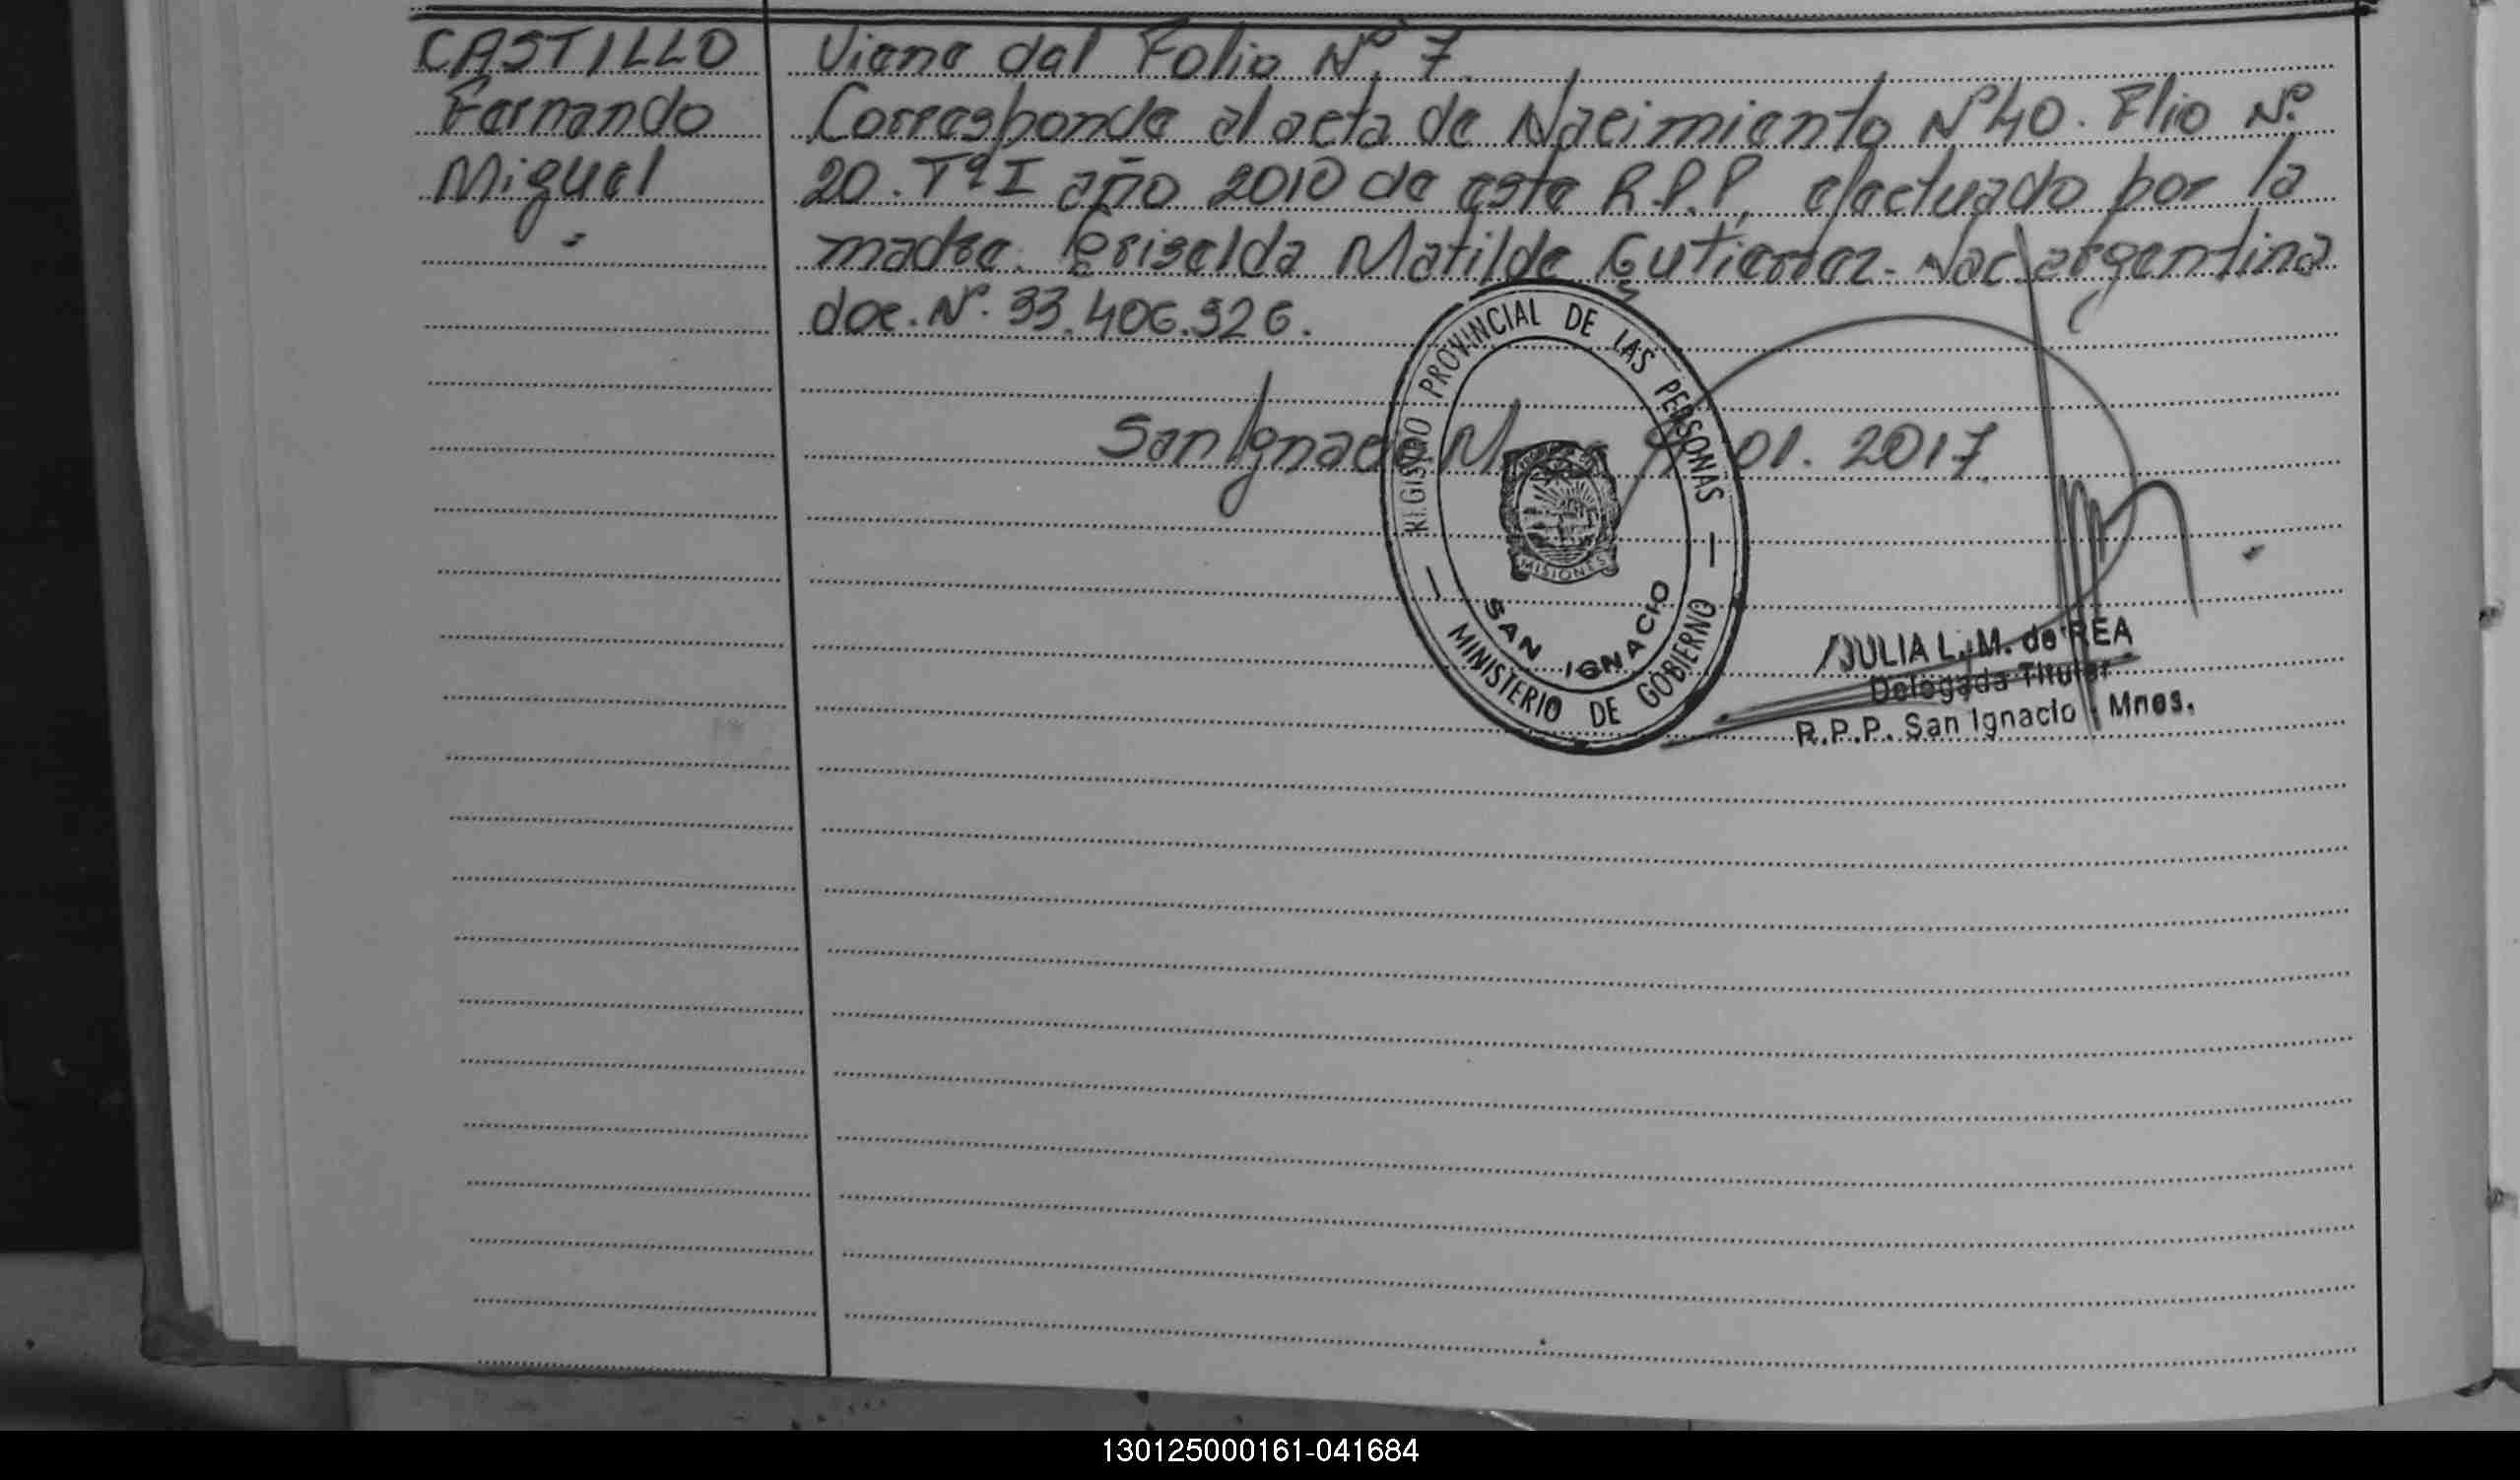 CASTILLO
Fernando
Miguel
Viene del Folio Nº 7
Corresponde al acta de Nacimiento Nº 40. Flio Nº.
20. Tº I año 2010 de este R.P.P. efectuado por la
madre. Griselda Matilde Gutierrez. Nac argentina
doc. Nº. 33.406.326.
San Ignacio 01. 2017
REGISTRO PROVINCIAL DE LAS PERSONAS
MISIONES
SAN IGNACIO
MINISTERIO DE GOBIERNO
JULIA L. M. de REA
Delegada Titular
R.P.P. San Ignacio - Mnes.
130125000161-041684